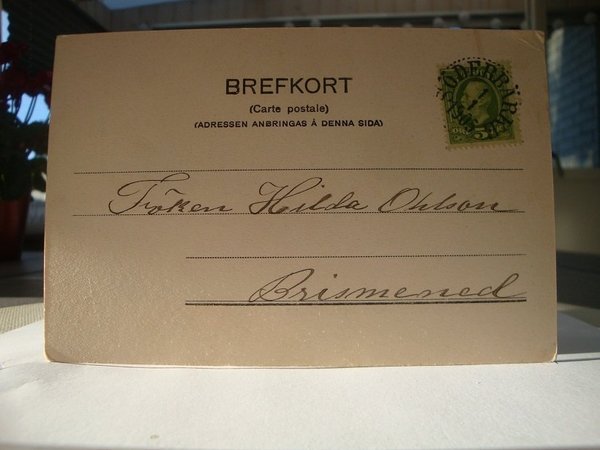 BREFKORT
(Carte postale)
(ADRESSEN ANBRINGAS Å DENNA SIDA)
5
Fröken Hilda Ohlson
Brismened